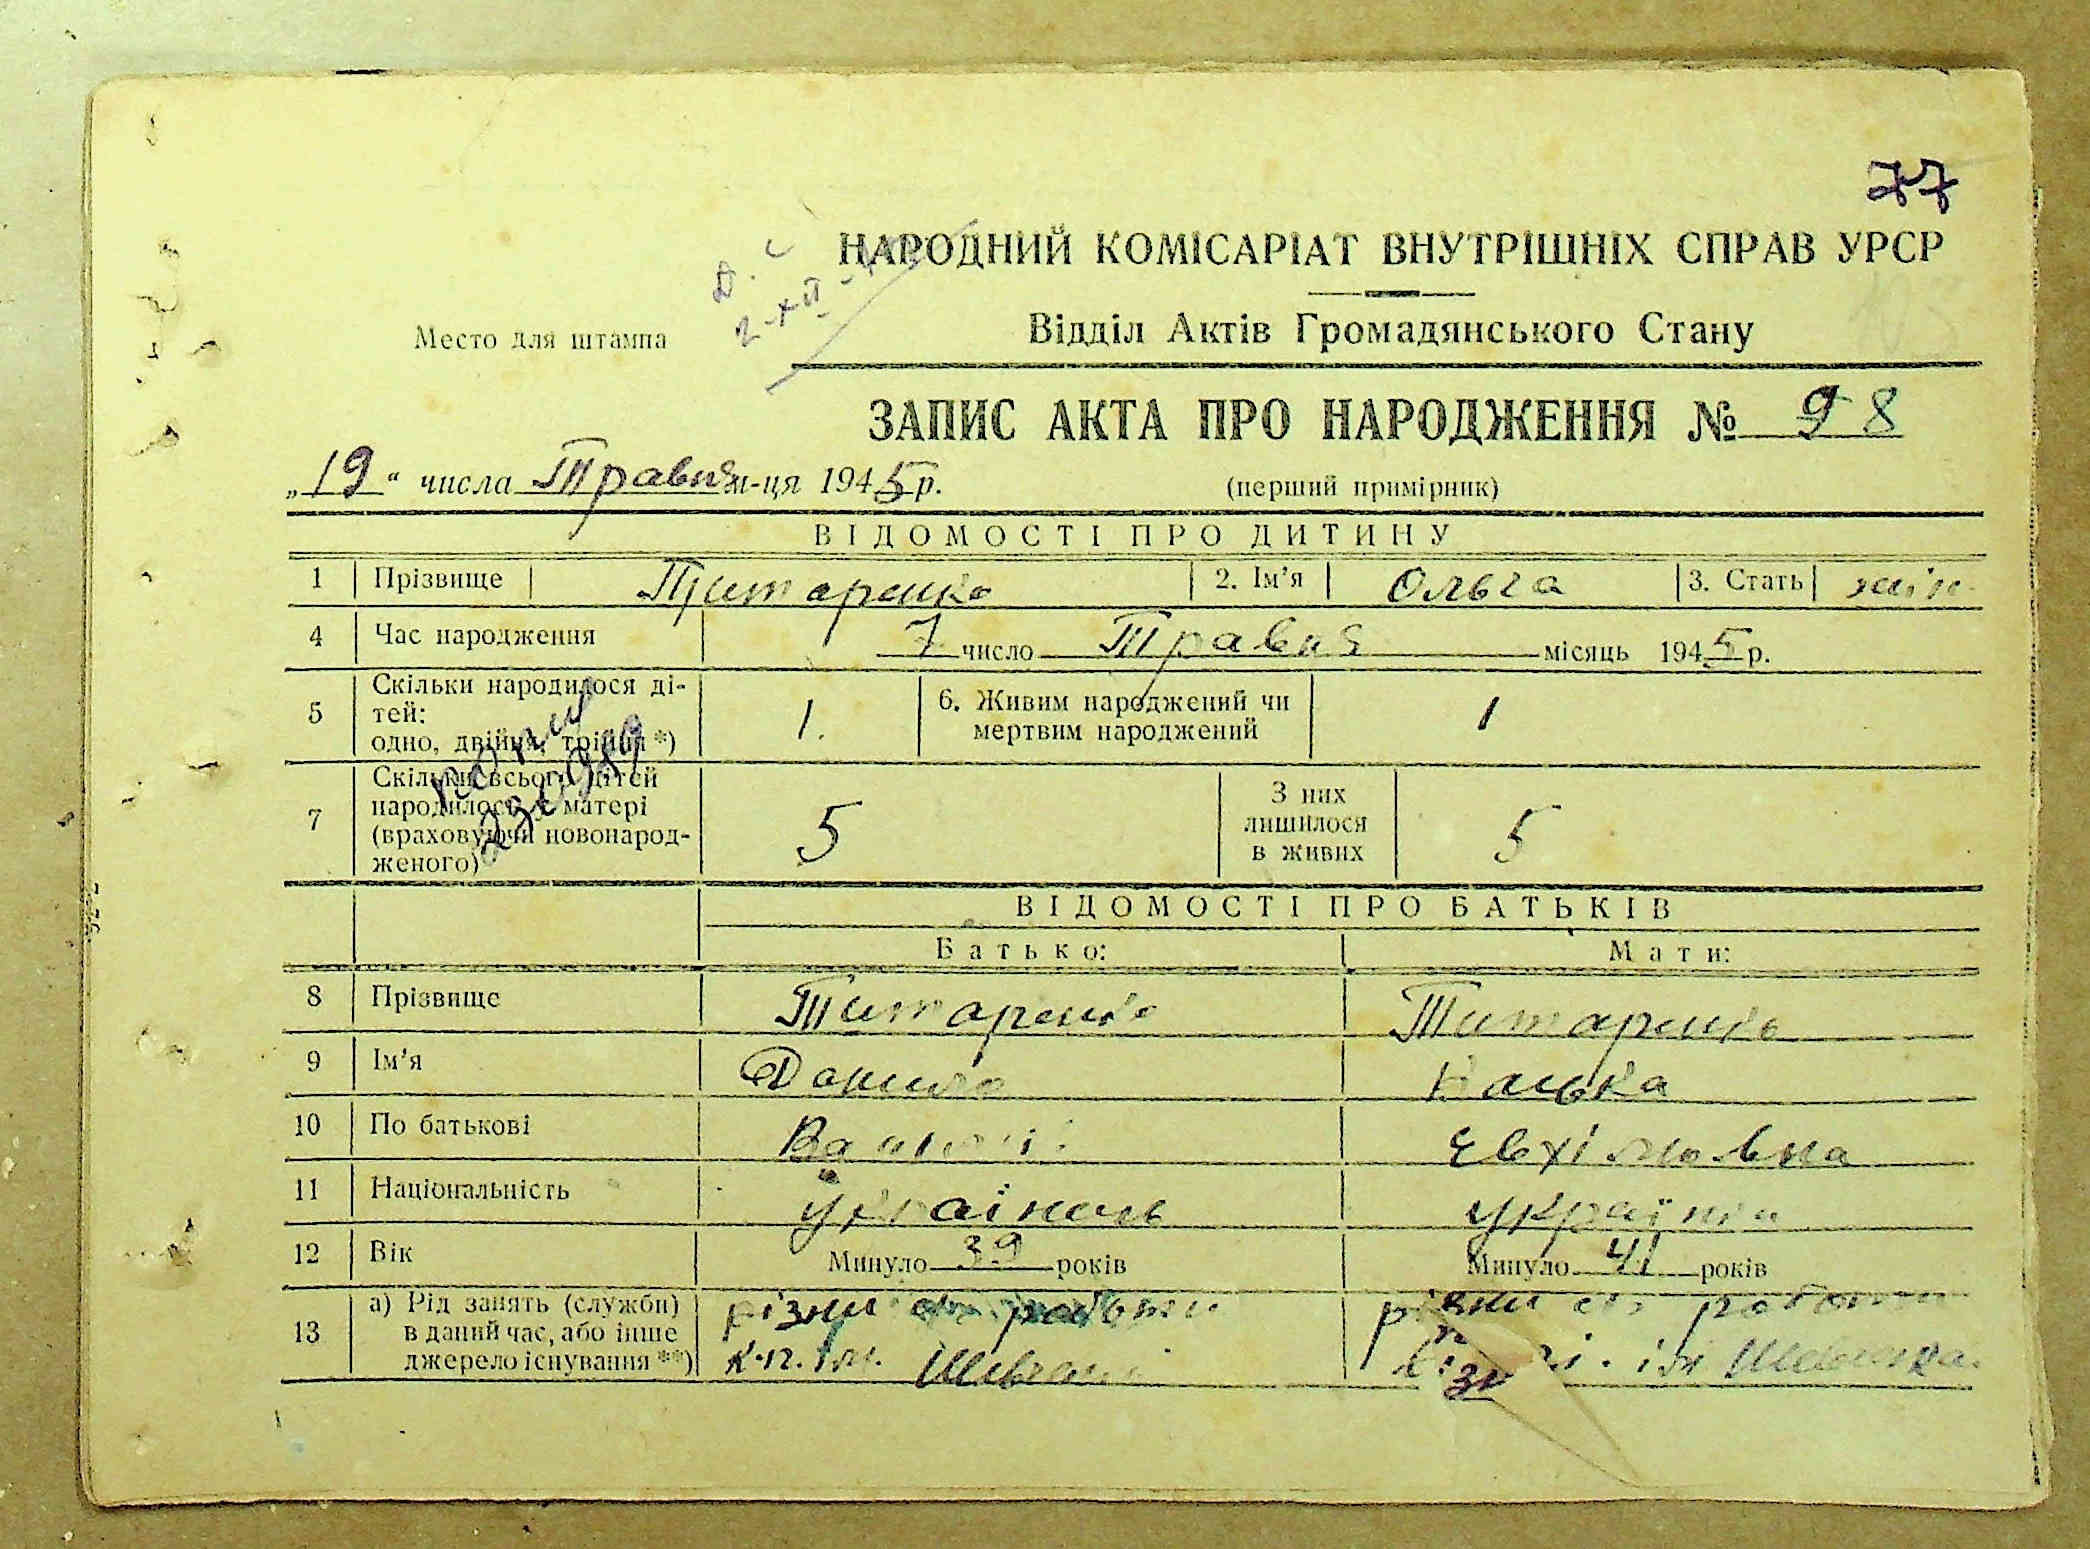 77
НАРОДНИЙ КОМІСАРІАТ ВНУТРІШНІХ СПРАВ УРСР
Відділ Актів Громадянського Стану
Место для штампа
ЗАПИС АКТА ПРО НАРОДЖЕННЯ № 98
„19“ числа Травня м-ця 1945 р.
(перший примірник)
ВІДОМОСТІ ПРО ДИТИНУ
1 Прізвище Титаренко 2. Ім’я Ольга 3. Стать жін.
4 Час народження 7 число Травня місяць 1945 р.
5 Скільки народилося ді-
тей:
одно, двійня, трійня *) 1. 6. Живим народжений чи
мертвим народжений 1
7 Скільки всього дітей
народилося у матері
(враховуючи новонарод-
женого) 5 З них
лишилося
в живих 5
ВІДОМОСТІ ПРО БАТЬКІВ
Батько: Мати:
8 Прізвище Титаренко Титаренко
9 Ім’я Данило
10 По батькові
11 Національність українець
12 Вік Минуло 39 років Минуло 41 років
13 а) Рід занять (служби)
в даний час, або інше
джерело існування **)
різни роботи
к-п. ім.
різни роботи
ім